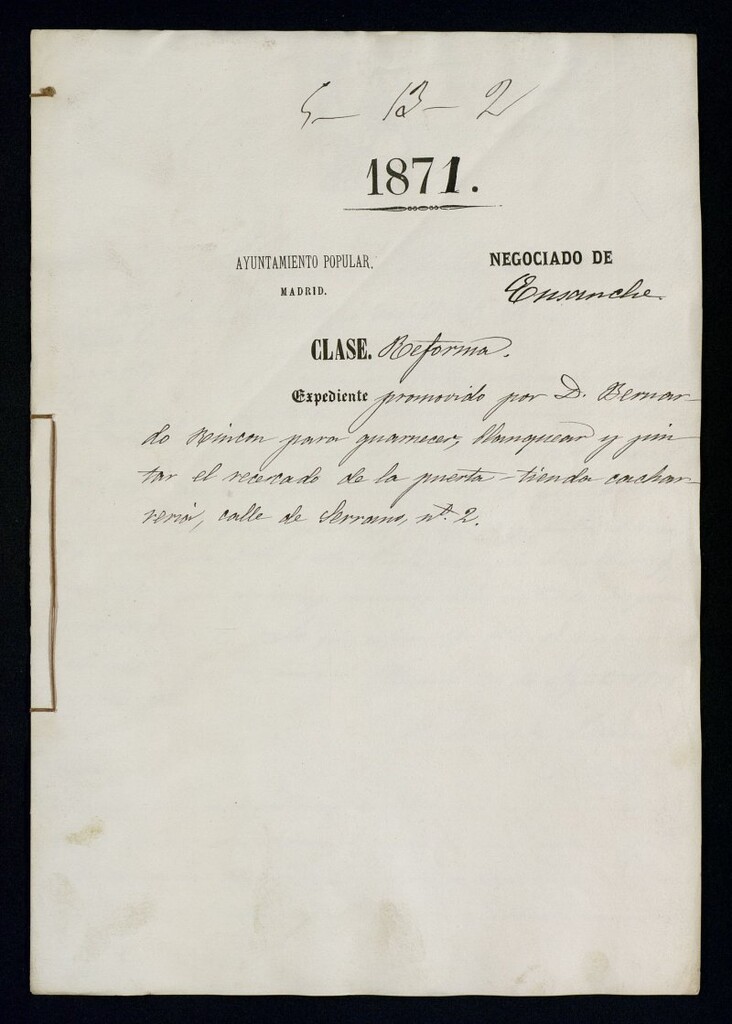 5- 13- 2
1871.
AYUNTAMIENTO POPULAR. NEGOCIADO DE
MADRID. Ensanche.
CLASE. Reforma.
Expediente promovido por D. Bernar-
do Rincon para guarnecer, blanquear y pin
tar el recercado de la puerta-tienda cachar-
reria, calle de Serrano, nº 2.